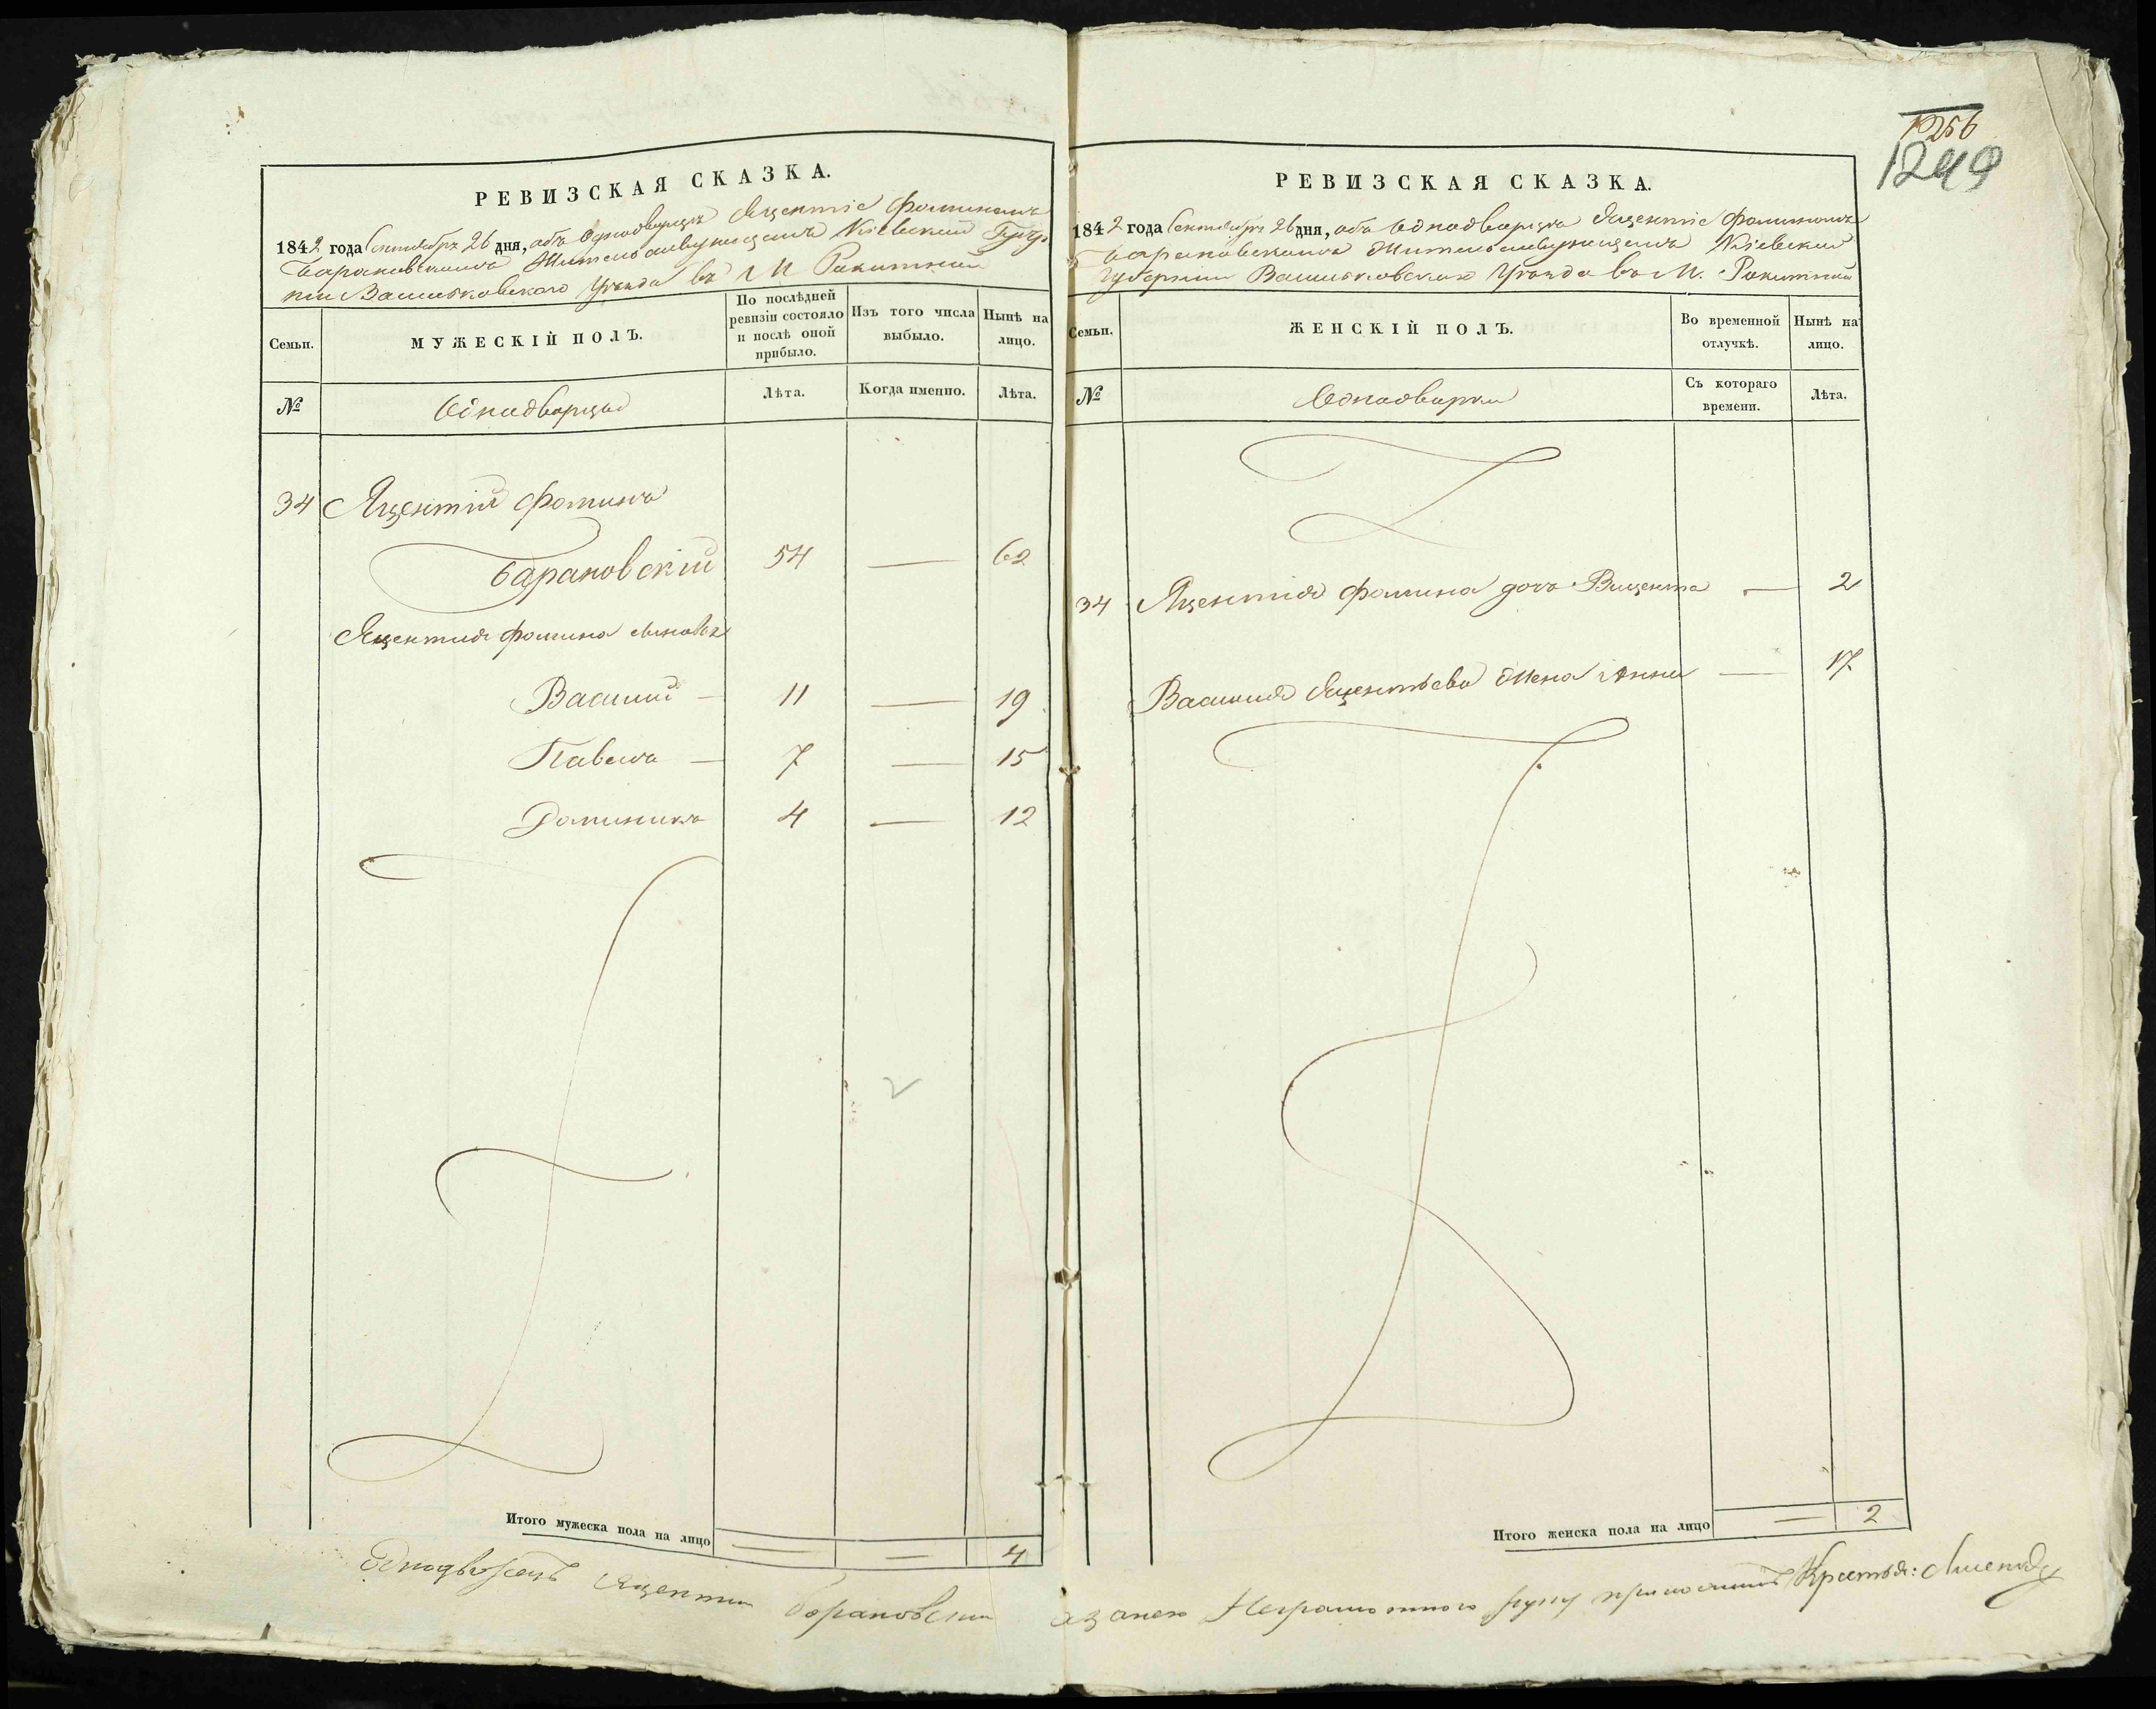 1256
1249
РЕВИЗСКАЯ СКАЗКА.
1842 года Сентября 26 дня, объ Однодворцѣ Яцентіе Фоминомъ
Барановскомъ Жительствующемъ Кіевской Губер
ніи Васильковского Уѣзда въ М Ракитной
Семьи.
МУЖЕСКІЙ ПОЛЪ.
По послѣдней ревизіи состояло и послѣ оной прибыло.
Изъ того числа выбыло.
Нынѣ на лицо.
№
Однодворцы
Лѣта.
Когда именно.
Лѣта.
34 Яцентій Фоминъ
Барановскій 54 — 62
Яцентія Фомина сыновья
Василий — 11 — 19
Павелъ — 7 — 15
Доминикъ 4 — 12
Итого мужеска пола на лицо — — 4
РЕВИЗСКАЯ СКАЗКА.
1842 года Сентября 26 дня, объ Однодворцѣ Яцентіе Фоминомъ
Барановскомъ Жительствующемъ Кіевской
Губерніи Васильковского Уѣзда въ М. Ракитной
Семьи.
ЖЕНСКІЙ ПОЛЪ.
Во временной отлучкѣ.
Нынѣ на лицо.
№
Однодворки
Съ котораго времени.
Лѣта.
34 Яцентія Фомина дочь Вицента — 2
Василия Яцентьева Жена Анна — 17
Итого женска пола на лицо — 2
Однодворецъ Яцентий Барановский азанего Неграмотного руку приложилъ